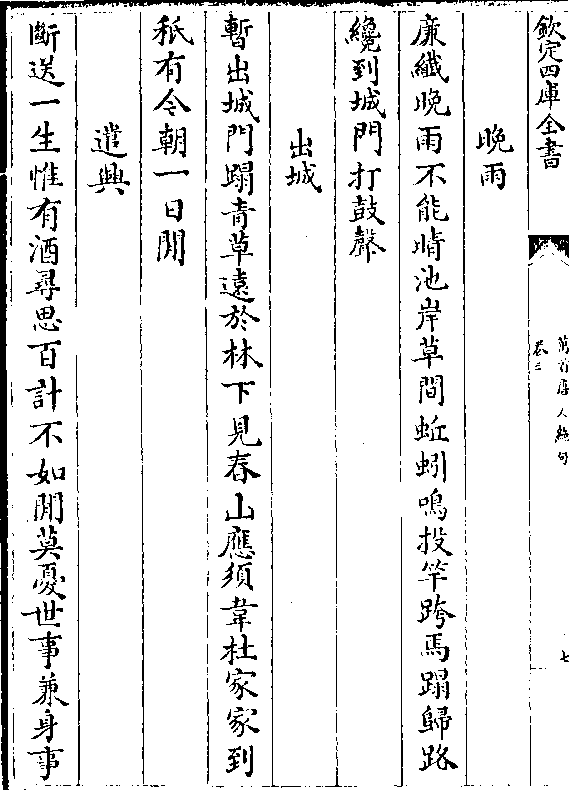 欽定四庫全書
萬首唐人絶句
卷三
七
晚雨
廉纖晚雨不能晴池岸草間蚯蚓鳴投竿跨馬蹋歸路
纔到城門打鼓聲
出城
暫出城門蹋青草遠於林下見春山應須韋杜家家到
秖有今朝一日閒
遣興
斷送一生惟有酒尋思百計不如閒莫憂世事兼身事